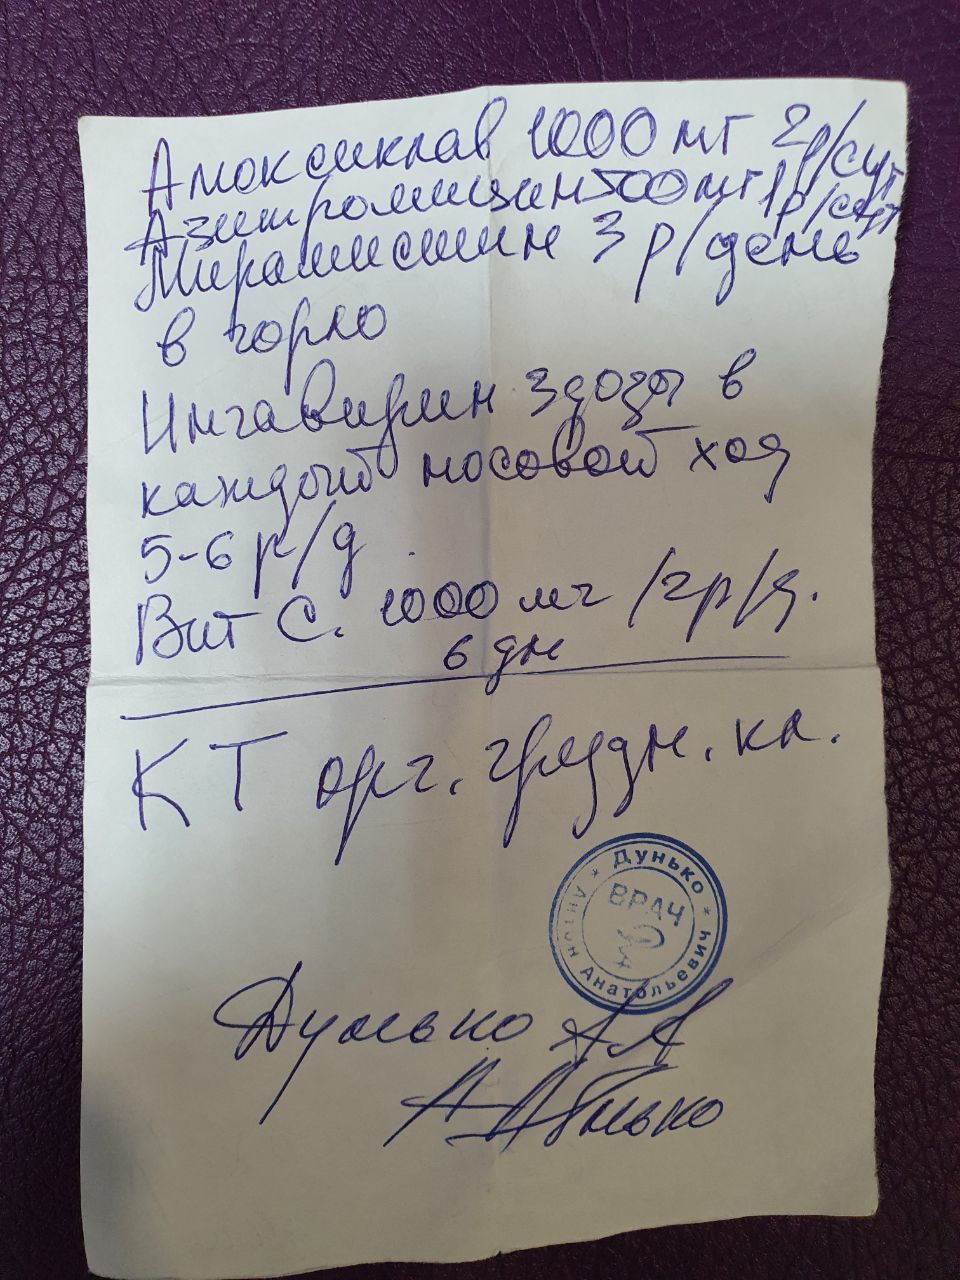 Амоксиклав 1000 мг 2р/сут
Азитромицин 500 мг 1р/сут
Мирамистин 3 р/день
в горло
Ингавирин 3 дозы в
каждый носовой ход
5-6 р/д.
Вит С. 1000 мг /2р/д.
6 дн
КТ орг. грудн. кл.
Дунько
Антон Анатольевич
ВРАЧ
Дунько АА